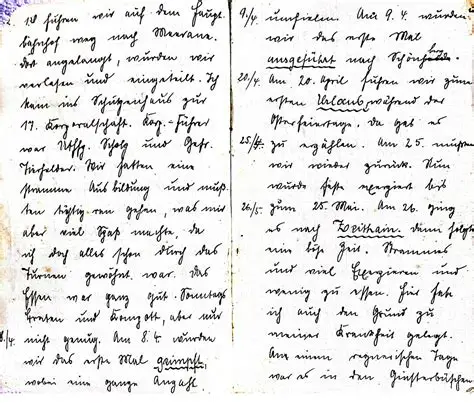 10 führen wir auf dem Haupt-
bahnhof weg nach Meerane.
dort angelangt, wurden wir
verlesen und eingeteilt. Ich
kam ins Schützenhaus zur
17. Korporalschaft. Korp.-Führer
war Uffz. Scholz und Gefr.
Wir hatten eine
stramme Ausbildung und muß-
ten tüchtig ran gehen, was mir
aber viel Spaß machte, da
ich doch alles schon durch das
Turnen gewöhnt war. Das
Essen war ganz gut. Sonntags
Braten und Kompott, aber nur
8./4. nicht genug. Am 8.4. wurden
wir das erste Mal geimpft,
wobei eine ganze Anzahl
9./4. umfielen. Am 9. 4. wurden
wir das erste Mal
ausgeführt nach
20./4. Am 20. April fuhren wir zum
ersten Urlaub, während der
Osterfeiertage. Da gab es
25./4. zu erzählen. Am 25. mußten
wir wieder zurück. Nun
wurde feste exerziert bis
26./5. zum 25. Mai. Am 26. ging
es nach Zeithain. dann folgte
eine böse Zeit. Strammes
und viel Exerzieren und
wenig zu essen. Hier habe
ich auch den Grund zu
meiner Krankheit gelegt.
An einem regnerischen Tage
war es in den Ginsterbüschen